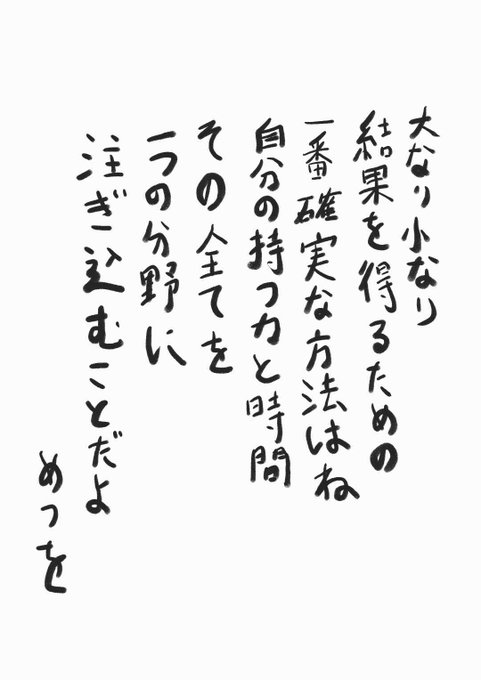 大なり小なり
結果を得るための
一番確実な方法はね
自分の持つ力と時間
その全てを
一つの分野に
注ぎ込むことだよ
めつを